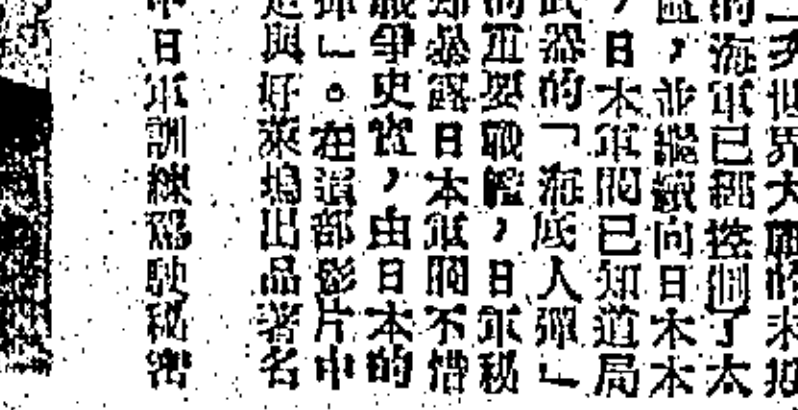 二次世界大戰的末期
的海軍已經控制了太
並繼續向日本本
，日本軍閥已知道局
武器的「海底人彈」
的重要戰艦，日軍秘
却暴露日本軍閥不惜
戰爭史實，由日本的
彈」。在這部影片中
是與好萊塢出品著名
中日軍訓練駕駛秘密